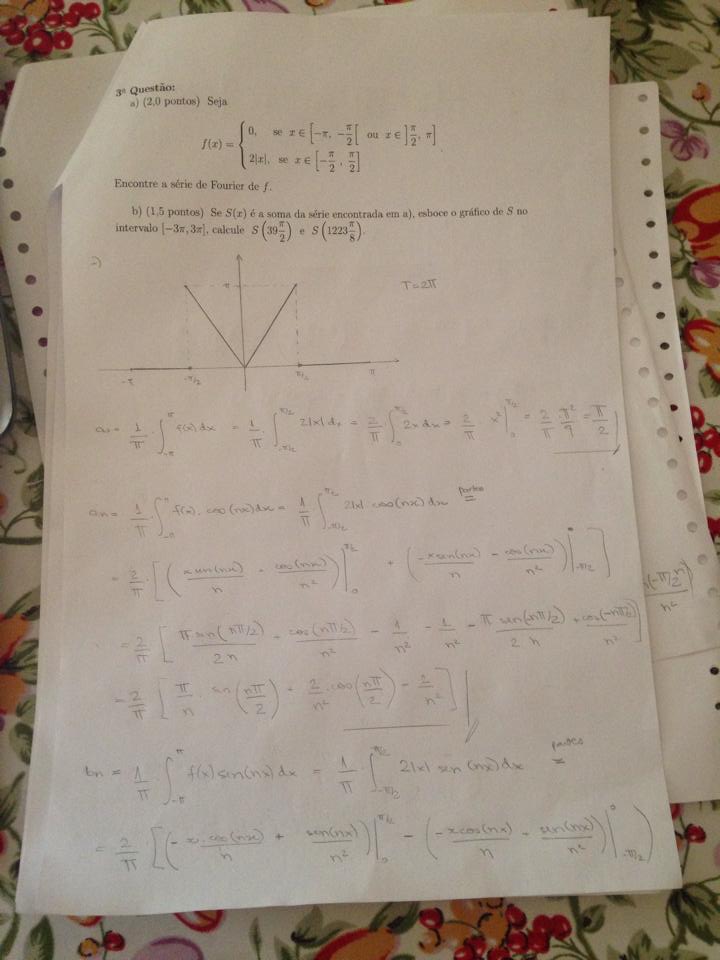 3ª Questão:
a) (2,0 pontos) Seja
f(x) = { 0, se x ∈ [−π, −π/2[ ou x ∈ ]π/2, π]
2|x|, se x ∈ [−π/2, π/2] .
Encontre a série de Fourier de f.
b) (1,5 pontos) Se S(x) é a soma da série encontrada em a), esboce o gráfico de S no
intervalo [−3π, 3π], calcule S(39π/2) e S(1223π/8).
a)
π T=2π
-π -π/2 π/2 π
a₀ = 1/π · ∫_{-π}^{π} f(x) dx = 1/π · ∫_{-π/2}^{π/2} 2|x| dx = 2/π ∫_0^{π/2} 2x dx = 2/π x² |_0^{π/2} = 2/π π²/4 = π/2
an = 1/π · ∫_{-π}^{π} f(x) · cos(nx) dx = 1/π ∫_{-π/2}^{π/2} 2|x| cos(nx) dx partes =
= 2/π · [ ( x sen(nx)/n + cos(nx)/n² ) |_0^{π/2} + ( -x sen(nx)/n − cos(nx)/n² ) |_{-π/2}^{0} ]
= 2/π [ π sin(nπ/2)/2n + cos(nπ/2)/n² − 1/n² − 1/n² − π sen(-nπ/2)/2n + cos(-nπ/2)/n² ]
= 2/π [ π/n · sin(nπ/2) + 2/n² · cos(nπ/2) − 2/n² ]
bn = 1/π · ∫_{-π}^{π} f(x) sen(nx) dx = 1/π · ∫_{-π/2}^{π/2} 2|x| sen(nx) dx partes =
= 2/π · [ ( - x · cos(nx)/n + sen(nx)/n² ) |_0^{π/2} − ( -x cos(nx)/n + sen(nx)/n² ) |_{-π/2}^{0} )